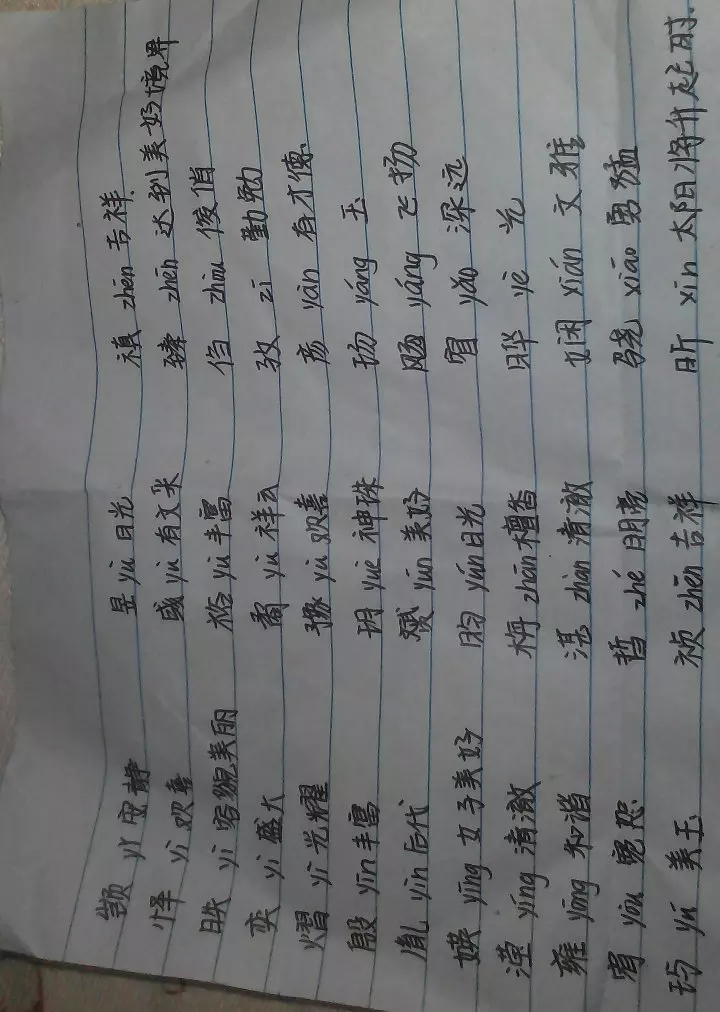 顗 yǐ 安静 昱 yù 日光 禛 zhēn 吉祥
怿 yì 欢喜 彧 yù 有文采 臻 zhēn 达到美好境界
昳 yì 容貌美丽 裕 yù 丰富 㑇 zhòu 俊俏
奕 yì 盛大 矞 yù 祥云 孜 zī 勤勉
熠 yì 光耀 豫 yù 欢喜 彦 yàn 有才德
殷 yīn 丰富 玥 yuè 神珠 玚 yáng 玉
胤 yìn 后代 赟 yūn 美好 飏 yáng 飞扬
媖 yīng 女子美好 昀 yún 日光 窅 yǎo 深远
滢 yíng 清澈 栴 zhān 檀香 晔 yè 光
雍 yōng 和谐 湛 zhàn 清澈 娴 xián 文雅
宥 yòu 宽恕 哲 zhé 明亮 骁 xiāo 勇猛
玙 yú 美玉 祯 zhēn 吉祥 昕 xīn 太阳将升起时.